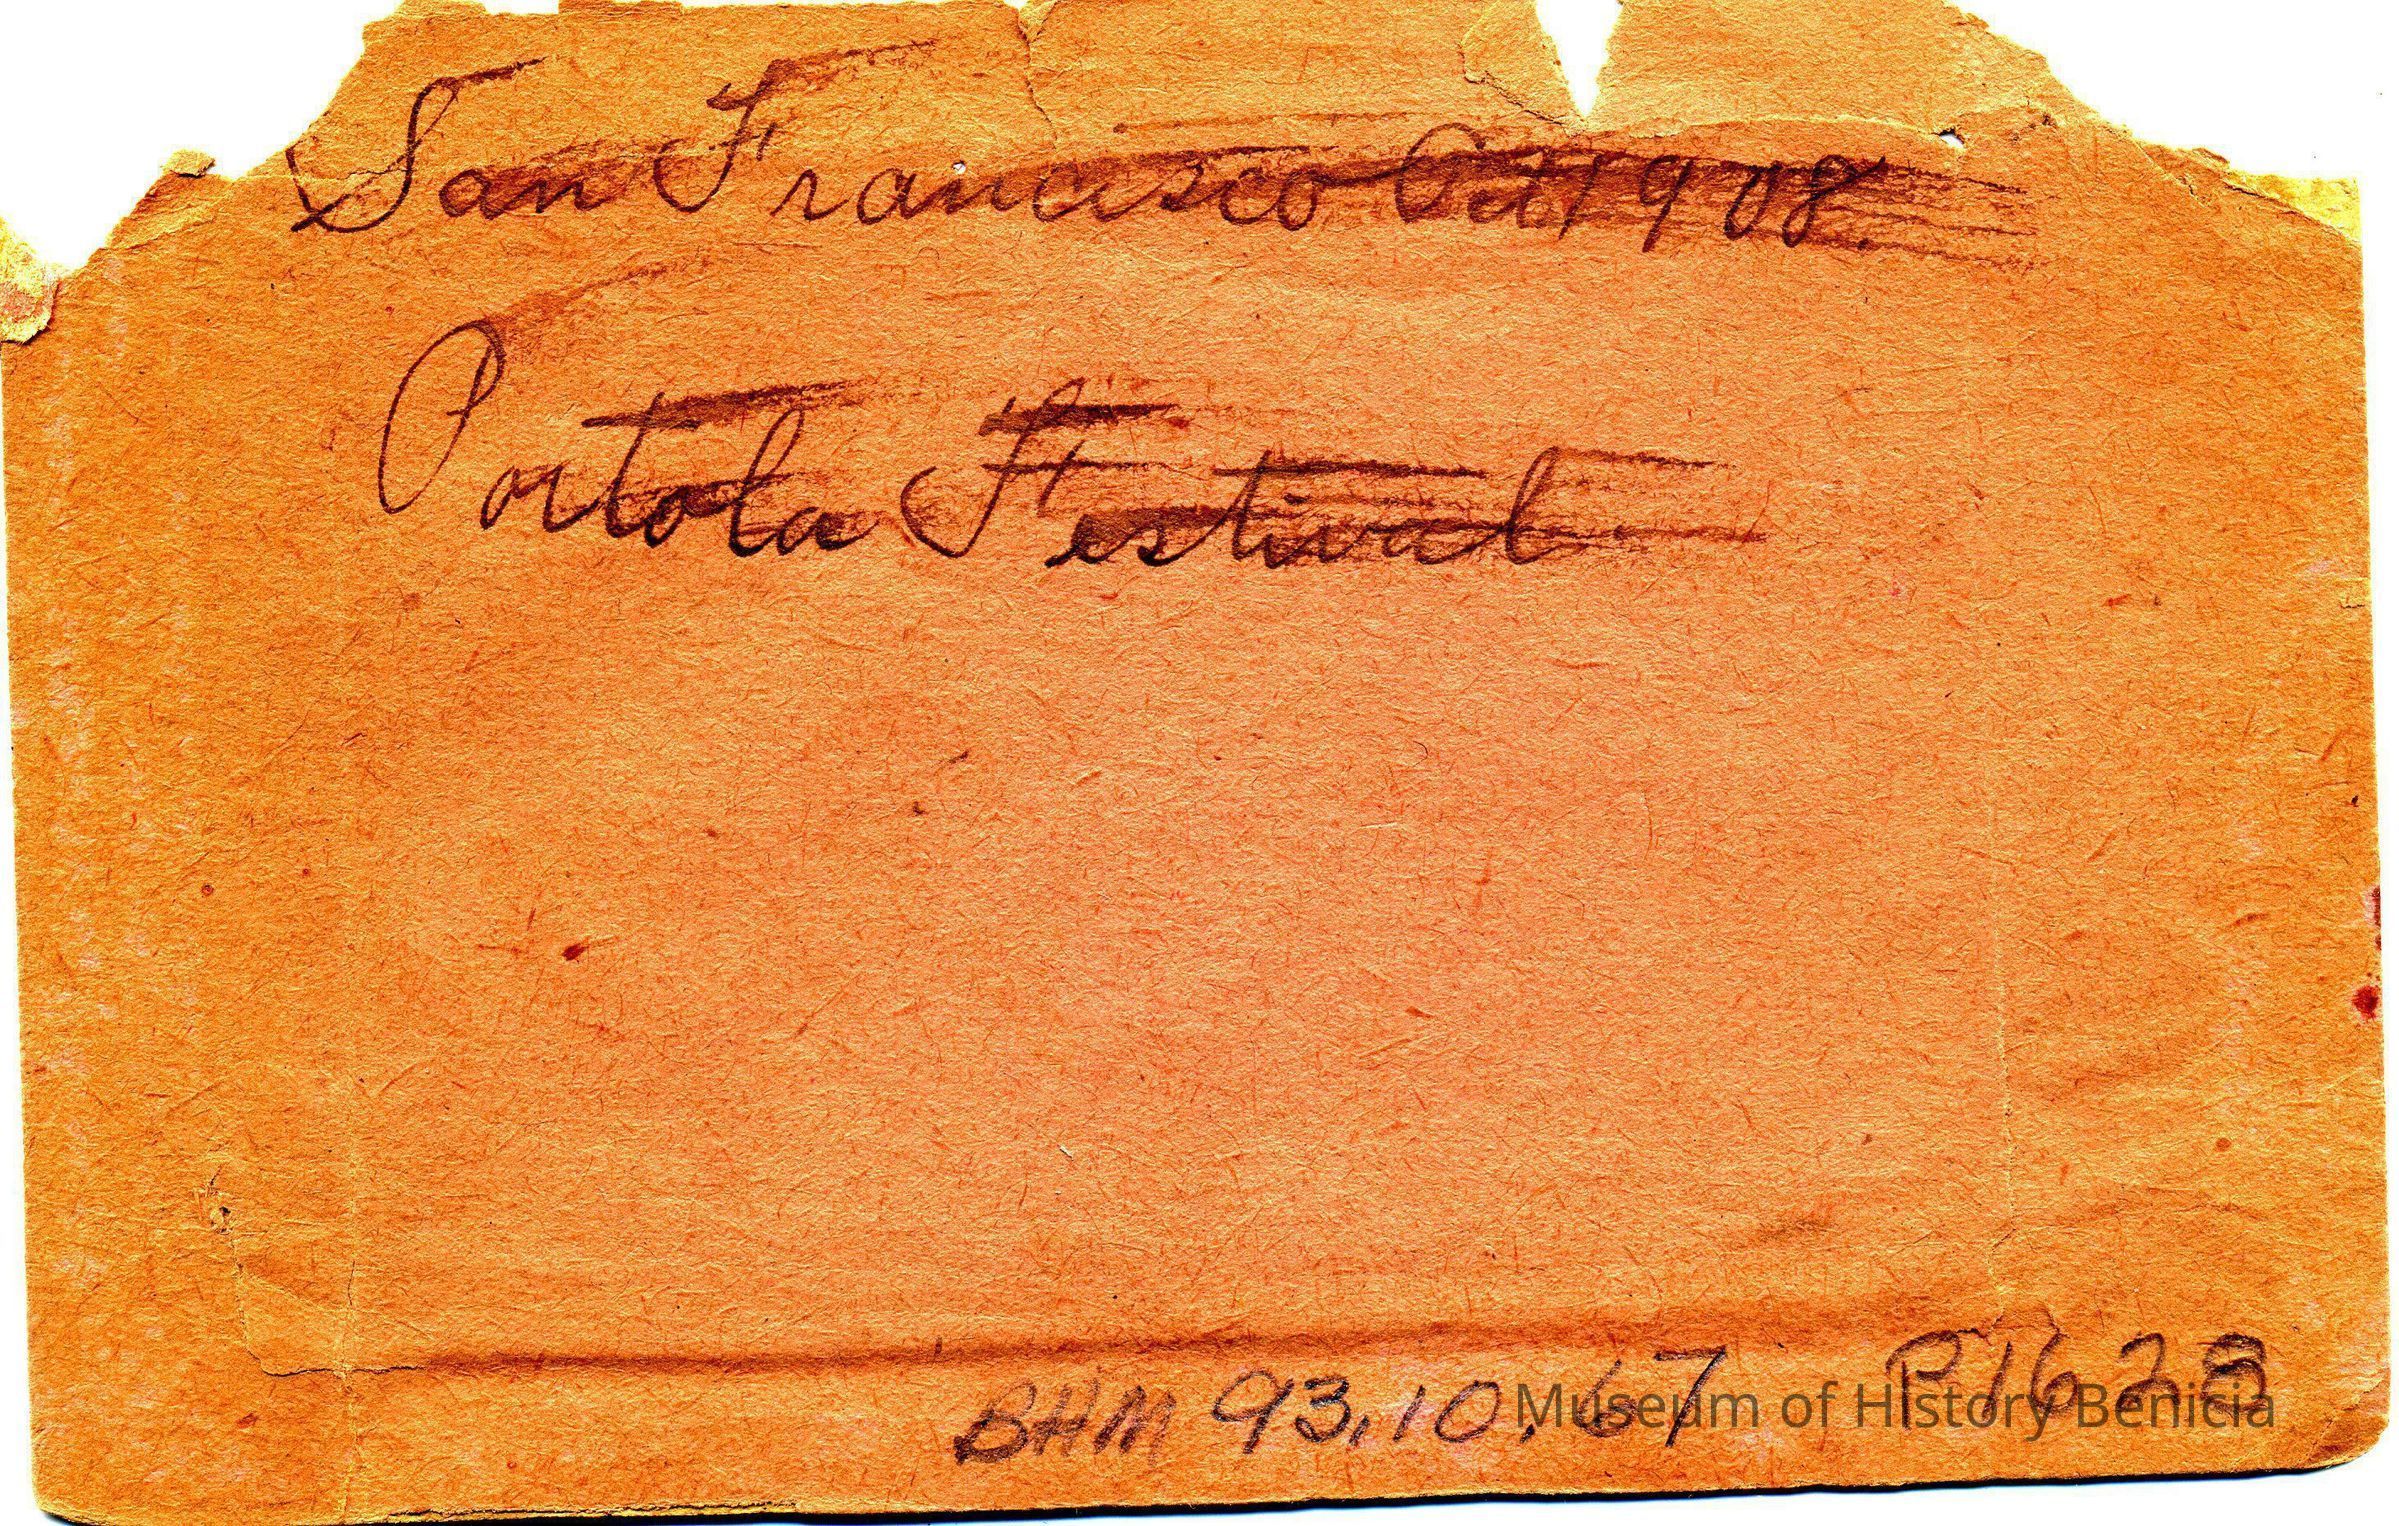 San Francisco Oct 1908.
Portola Festival
BHM 93.10.67 P1623
Museum of History Benicia